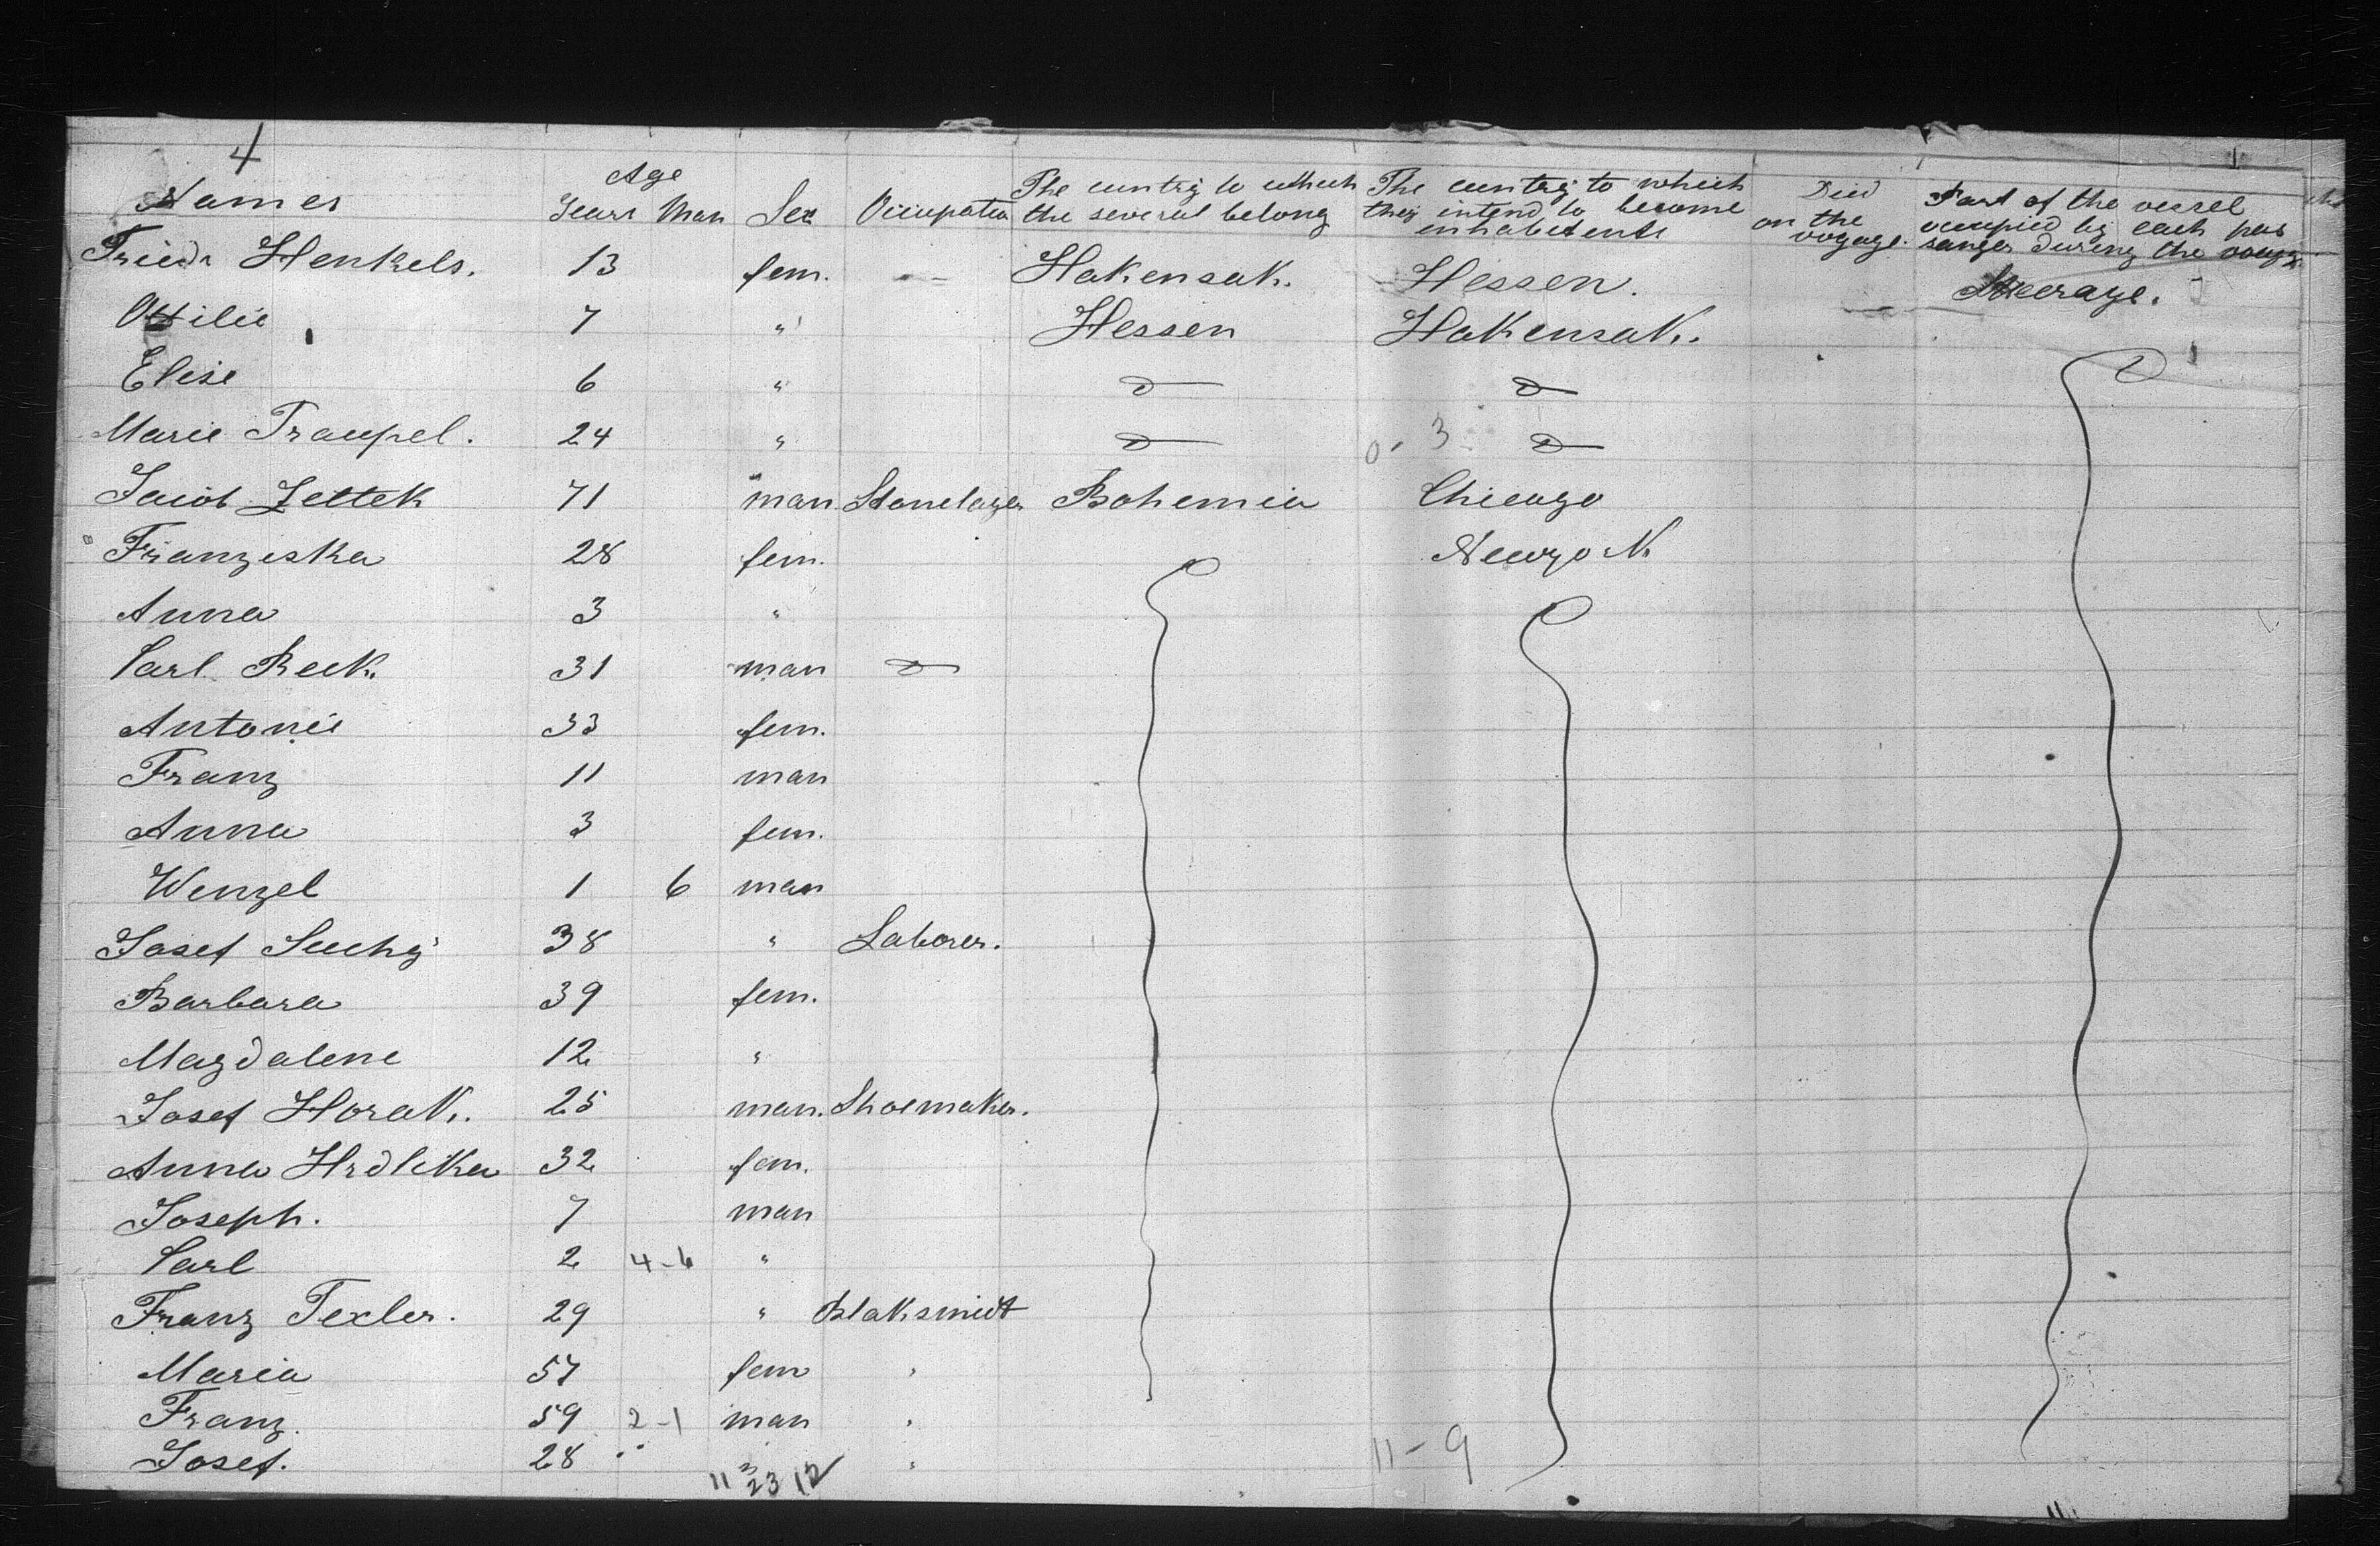 4
Names Age Years Mon Sex Occupation The cuntry to which the several belong The cuntry to which they intend to become inhabitents Died on the voyage. Part of the vessel occupied by each passanger during the voyage
Friedr Henkels. 13 fem. Hakensak. Hessen. Steerage.
Ottilie 7 " Hessen Hakensak.
Elise 6 " do do
Marie Traupel. 24 " do 0-3 do
Jacob Zettek 71 man Stonelayer Bohemia Chicago
" Franziska 28 fem. Newyork
Anna 3 "
Carl Beck. 31 man do
Antonie 33 fem.
Franz 11 man
Anna 3 fem.
Wenzel 1 6 man
Josef Suchy 38 " Laborer.
Barbara 39 fem.
Magdalene 12 "
Josef Horak. 25 man. Shoemaker.
Anna Hrdlika 32 fem.
Joseph. 7 man
Carl 2 4-6 "
Franz Texler. 29 " Blaksmidt
Maria 57 fem
Franz. 59 2-1 man
Josef. 28 "
11 23 12 11-9